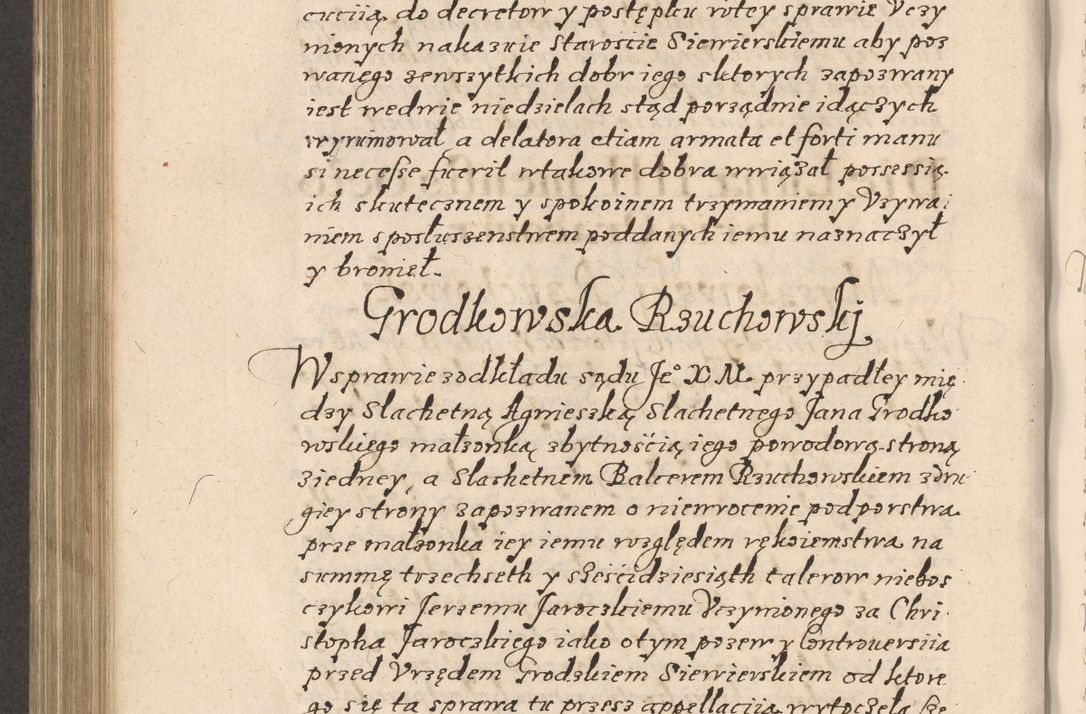 cuciią, do decretow y postępku wtey sprawie Vczy
nionych nakazuie Staroście Siewierskiemu aby poz
wanego zewszytkich dobr iego sktorych zapozwany
iest wedwie niedzielach stąd porządnie idączych
wyrumował, a delatora etiam armata et forti manu
si necesse fuerit wtakowe dobra wwiązał possessią
ich skutecznem y spokoinem trzymaniemy Vzywa
niem sposłuszenstwem poddanych iemu naznaczył
y bronieł.
Grodkowska Rzuchowskj
Wsprawie zodkładu sądu Je° X M przypadłey mię
dzy Slachetną Agnieszką, Slachetnego Jana Grodko
wskiego małzonką, zbytnością iego powodową stroną
ziedney, a Slachetnem Balcerem Rzuchowskiem zdru
giey strony zapozwanem o niewrocenie podporstwa
prze małzonka iey iemu względem rękoiemstwa na
summę trzechseth y sześcidziesiąth talerow niebos
czykowi Jerzemu Jaroczkiemu Vczynionego za Chri
stopha Jaroczkiego iako otym pozew y Controuersiia
przed Vrzędem Grodzkiem Siewierskiem od ktore
go się ta sprawa tu przesz appellaciią wytoczeła sze